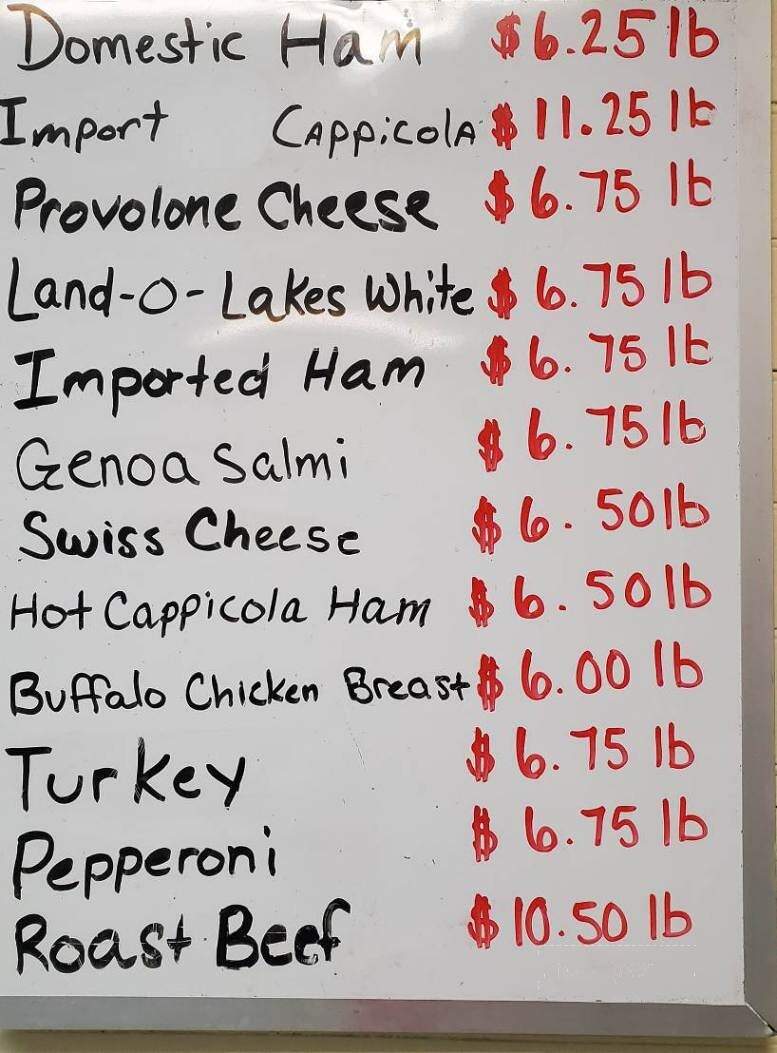 Domestic Ham $6.25 lb
Import CAPPicolA $11.25 lb
Provolone Cheese $6.75 lb
Land-O-Lakes White $6.75 lb
Imported Ham $6.75 lb
Genoa Salmi $6.75 lb
Swiss Cheese $6.50 lb
Hot Cappicola Ham $6.50 lb
Buffalo Chicken Breast $6.00 lb
Turkey $6.75 lb
Pepperoni $6.75 lb
Roast Beef $10.50 lb